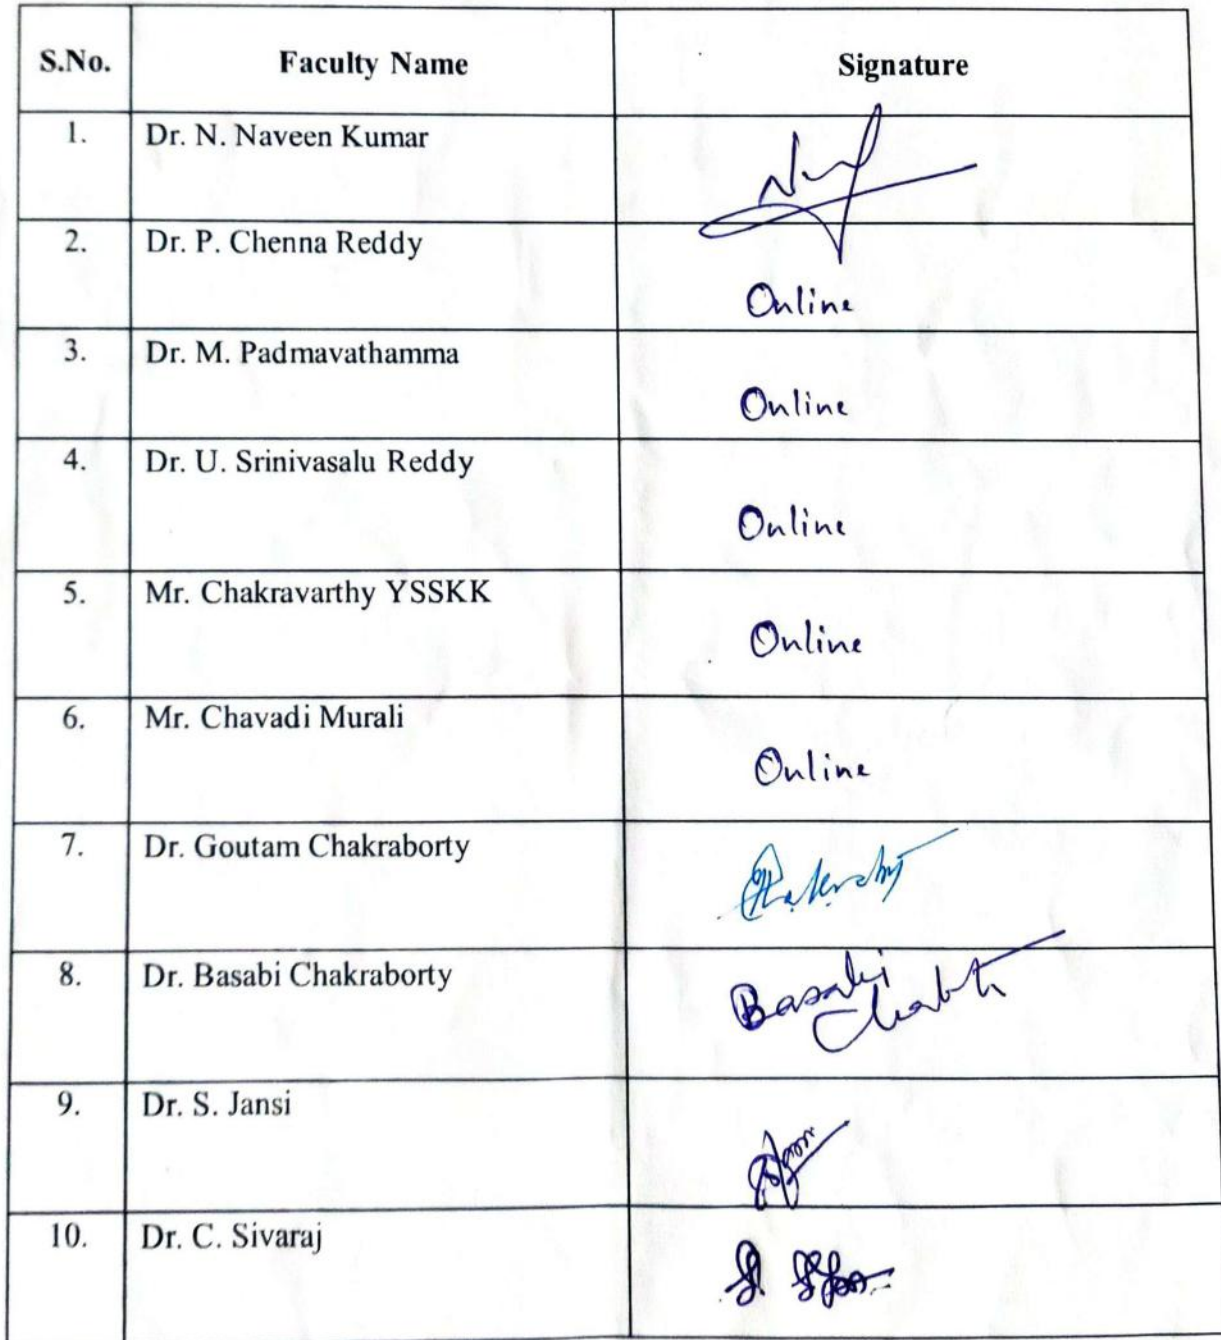 S.No. Faculty Name Signature
1. Dr. N. Naveen Kumar
2. Dr. P. Chenna Reddy Online
3. Dr. M. Padmavathamma Online
4. Dr. U. Srinivasalu Reddy Online
5. Mr. Chakravarthy YSSKK Online
6. Mr. Chavadi Murali Online
7. Dr. Goutam Chakraborty
8. Dr. Basabi Chakraborty Basabi
9. Dr. S. Jansi
10. Dr. C. Sivaraj